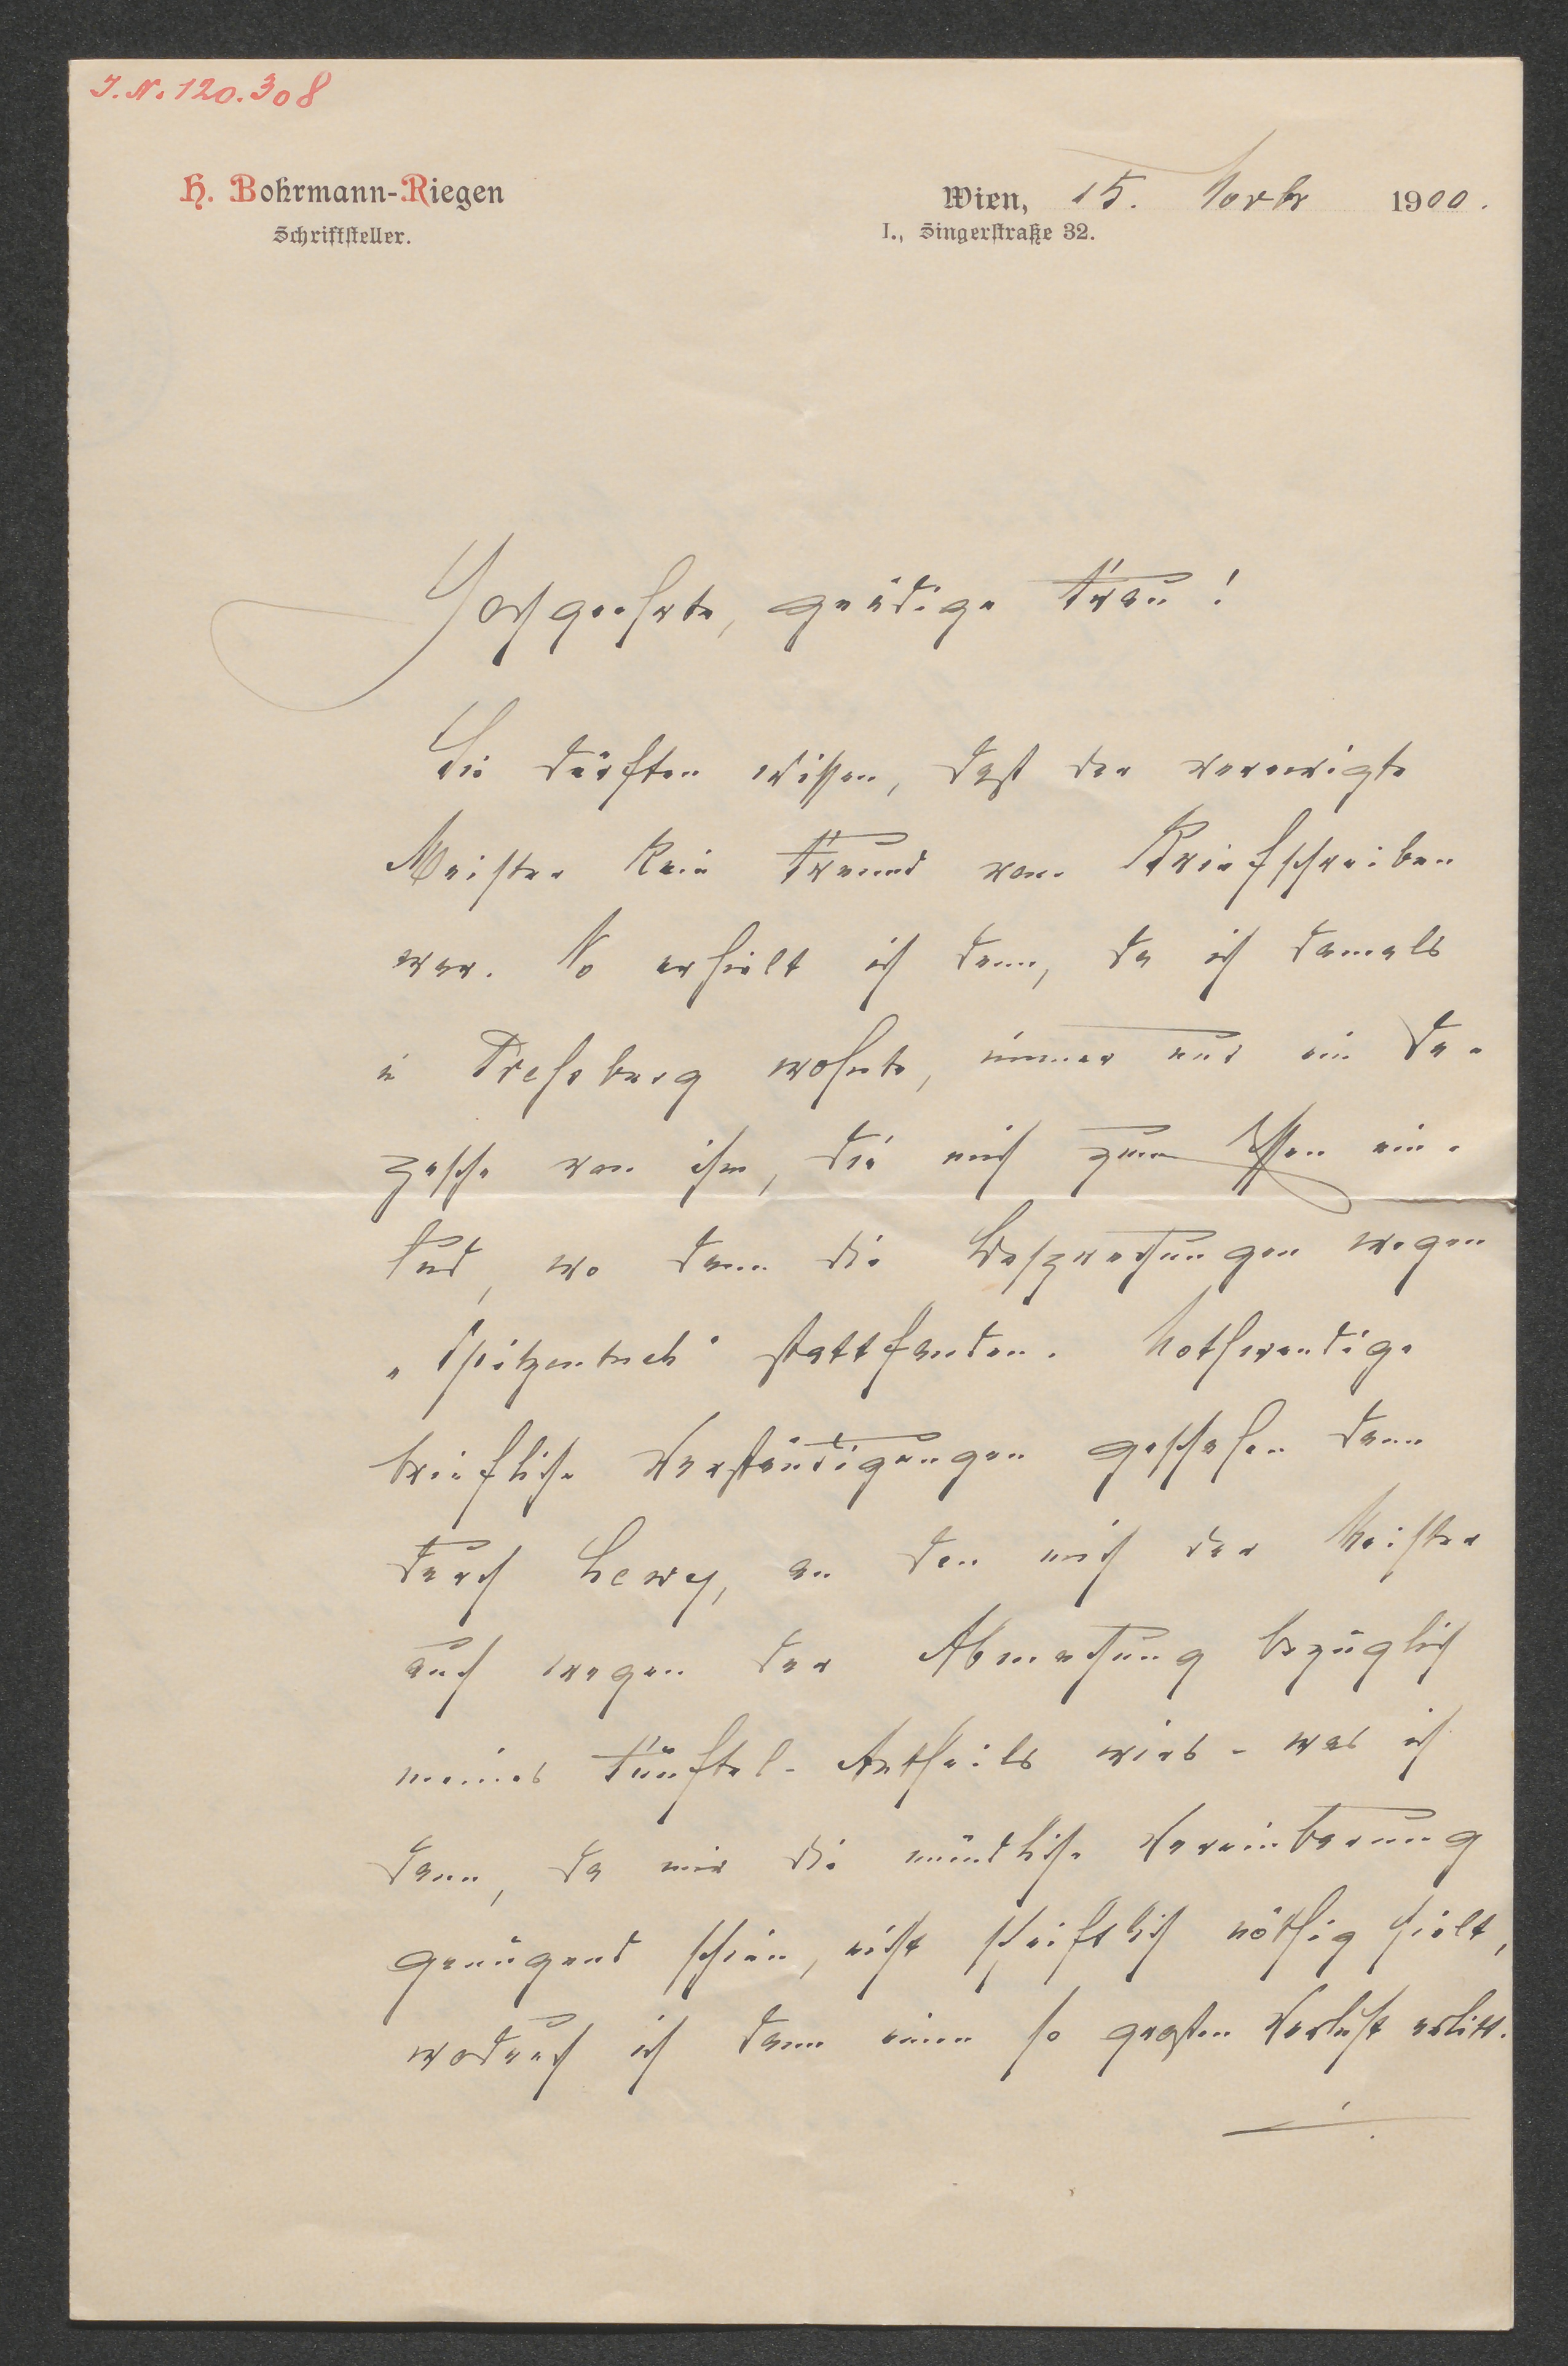 I. N. 120.308
H. Bohrmann-Riegen
Schriftsteller.
Wien, 15. Novbr 1900.
I., Singerstraße 32.
Hochgeehrte, gnädige Frau!
Sie dürften wissen, daß der verewigte
Meister kein Freund vom Briefschreiben
war. So erhielt ich denn, da ich damals
in Preßburg wohnte, immer nur ein De-
pesche von ihm, die mich zum Essen ein-
lud, wo dann die Besprechungen wegen
„Spitzentuch" stattfanden. Nothwendige
briefliche Verständigungen geschahen dann
durch Lewy, an den mich der Meister
auch wegen der Abmachung bezüglich
meines Fünftel-Antheils wies - was ich
dann, da mir die mündliche Vereinbarung
genügend schien, nicht schriftlich nöthig hielt,
wodurch ich dann einen so großen Verlust erlitt.